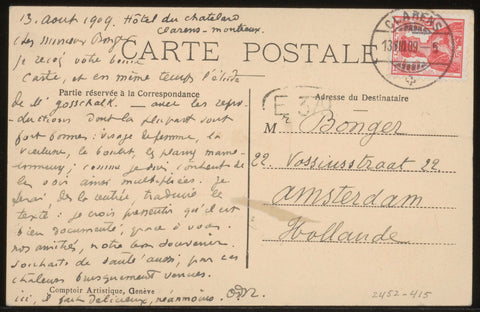 13. Aout 1909. Hôtel du Chatelard
Clarens - montreux.
Cher Monsieur Bonger
CARTE POSTALE
CLARENS
13 VIII 09
je reçois votre bonne
Carte, et en même temps l'étude
Partie réservée à la Correspondance
Adresse du Destinataire
de Mr Gosschalk — avec les repro-
ductions dont la plupart sont
fort bonnes: visage de femme, la
voiture, le
comme je suis content de
les voir ainsi multipliées. je
ferai, dès la rentrée, traduire le
texte: je crois pressentir qu'il est
bien documenté, grace à vous.
nos amitiés, notre bon souvenir.
souhaits de santé aussi, par ces
chaleurs brusquement venues.
ici, il fait délicieux, néanmoins.
Mr Bonger
22. Vossiusstraat 22.
Amsterdam
Hollande
Comptoir Artistique, Genève
2452-415